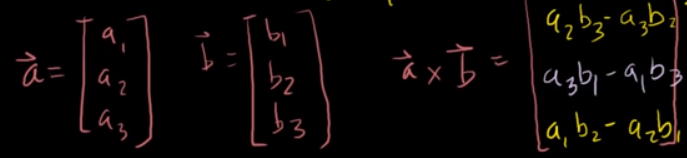 a⃗ = [a₁ a₂ a₃] b⃗ = [b₁ b₂ b₃] a⃗ × b⃗ = [a₂b₃ - a₃b₂
a₃b₁ - a₁b₃
a₁b₂ - a₂b₁]